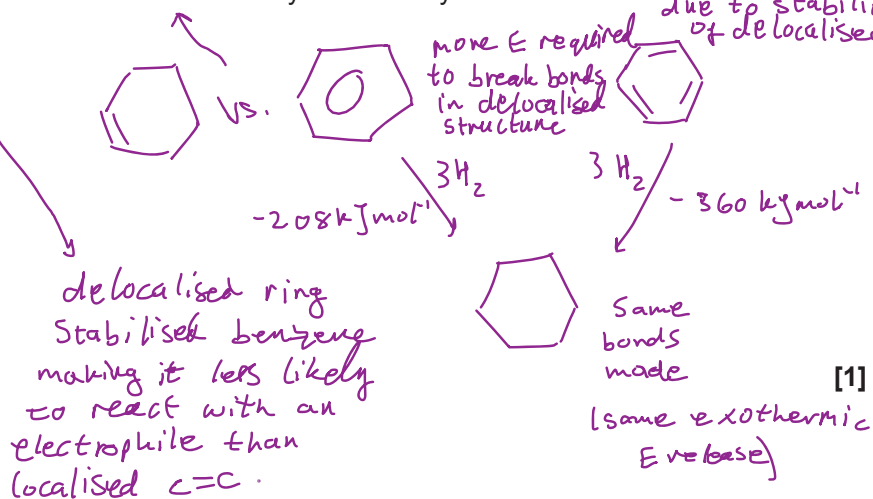 due to stabili
of delocalised
more E required
to break bonds
in delocalised
structure
vs.
3H2
3 H2
-208kJmol-1
- 360 kJmol-1
delocalised ring
Stabilised benzene
making it less likely
to react with an
electrophile than
localised c=c .
Same
bonds
made
[1]
(same exothermic
E release)